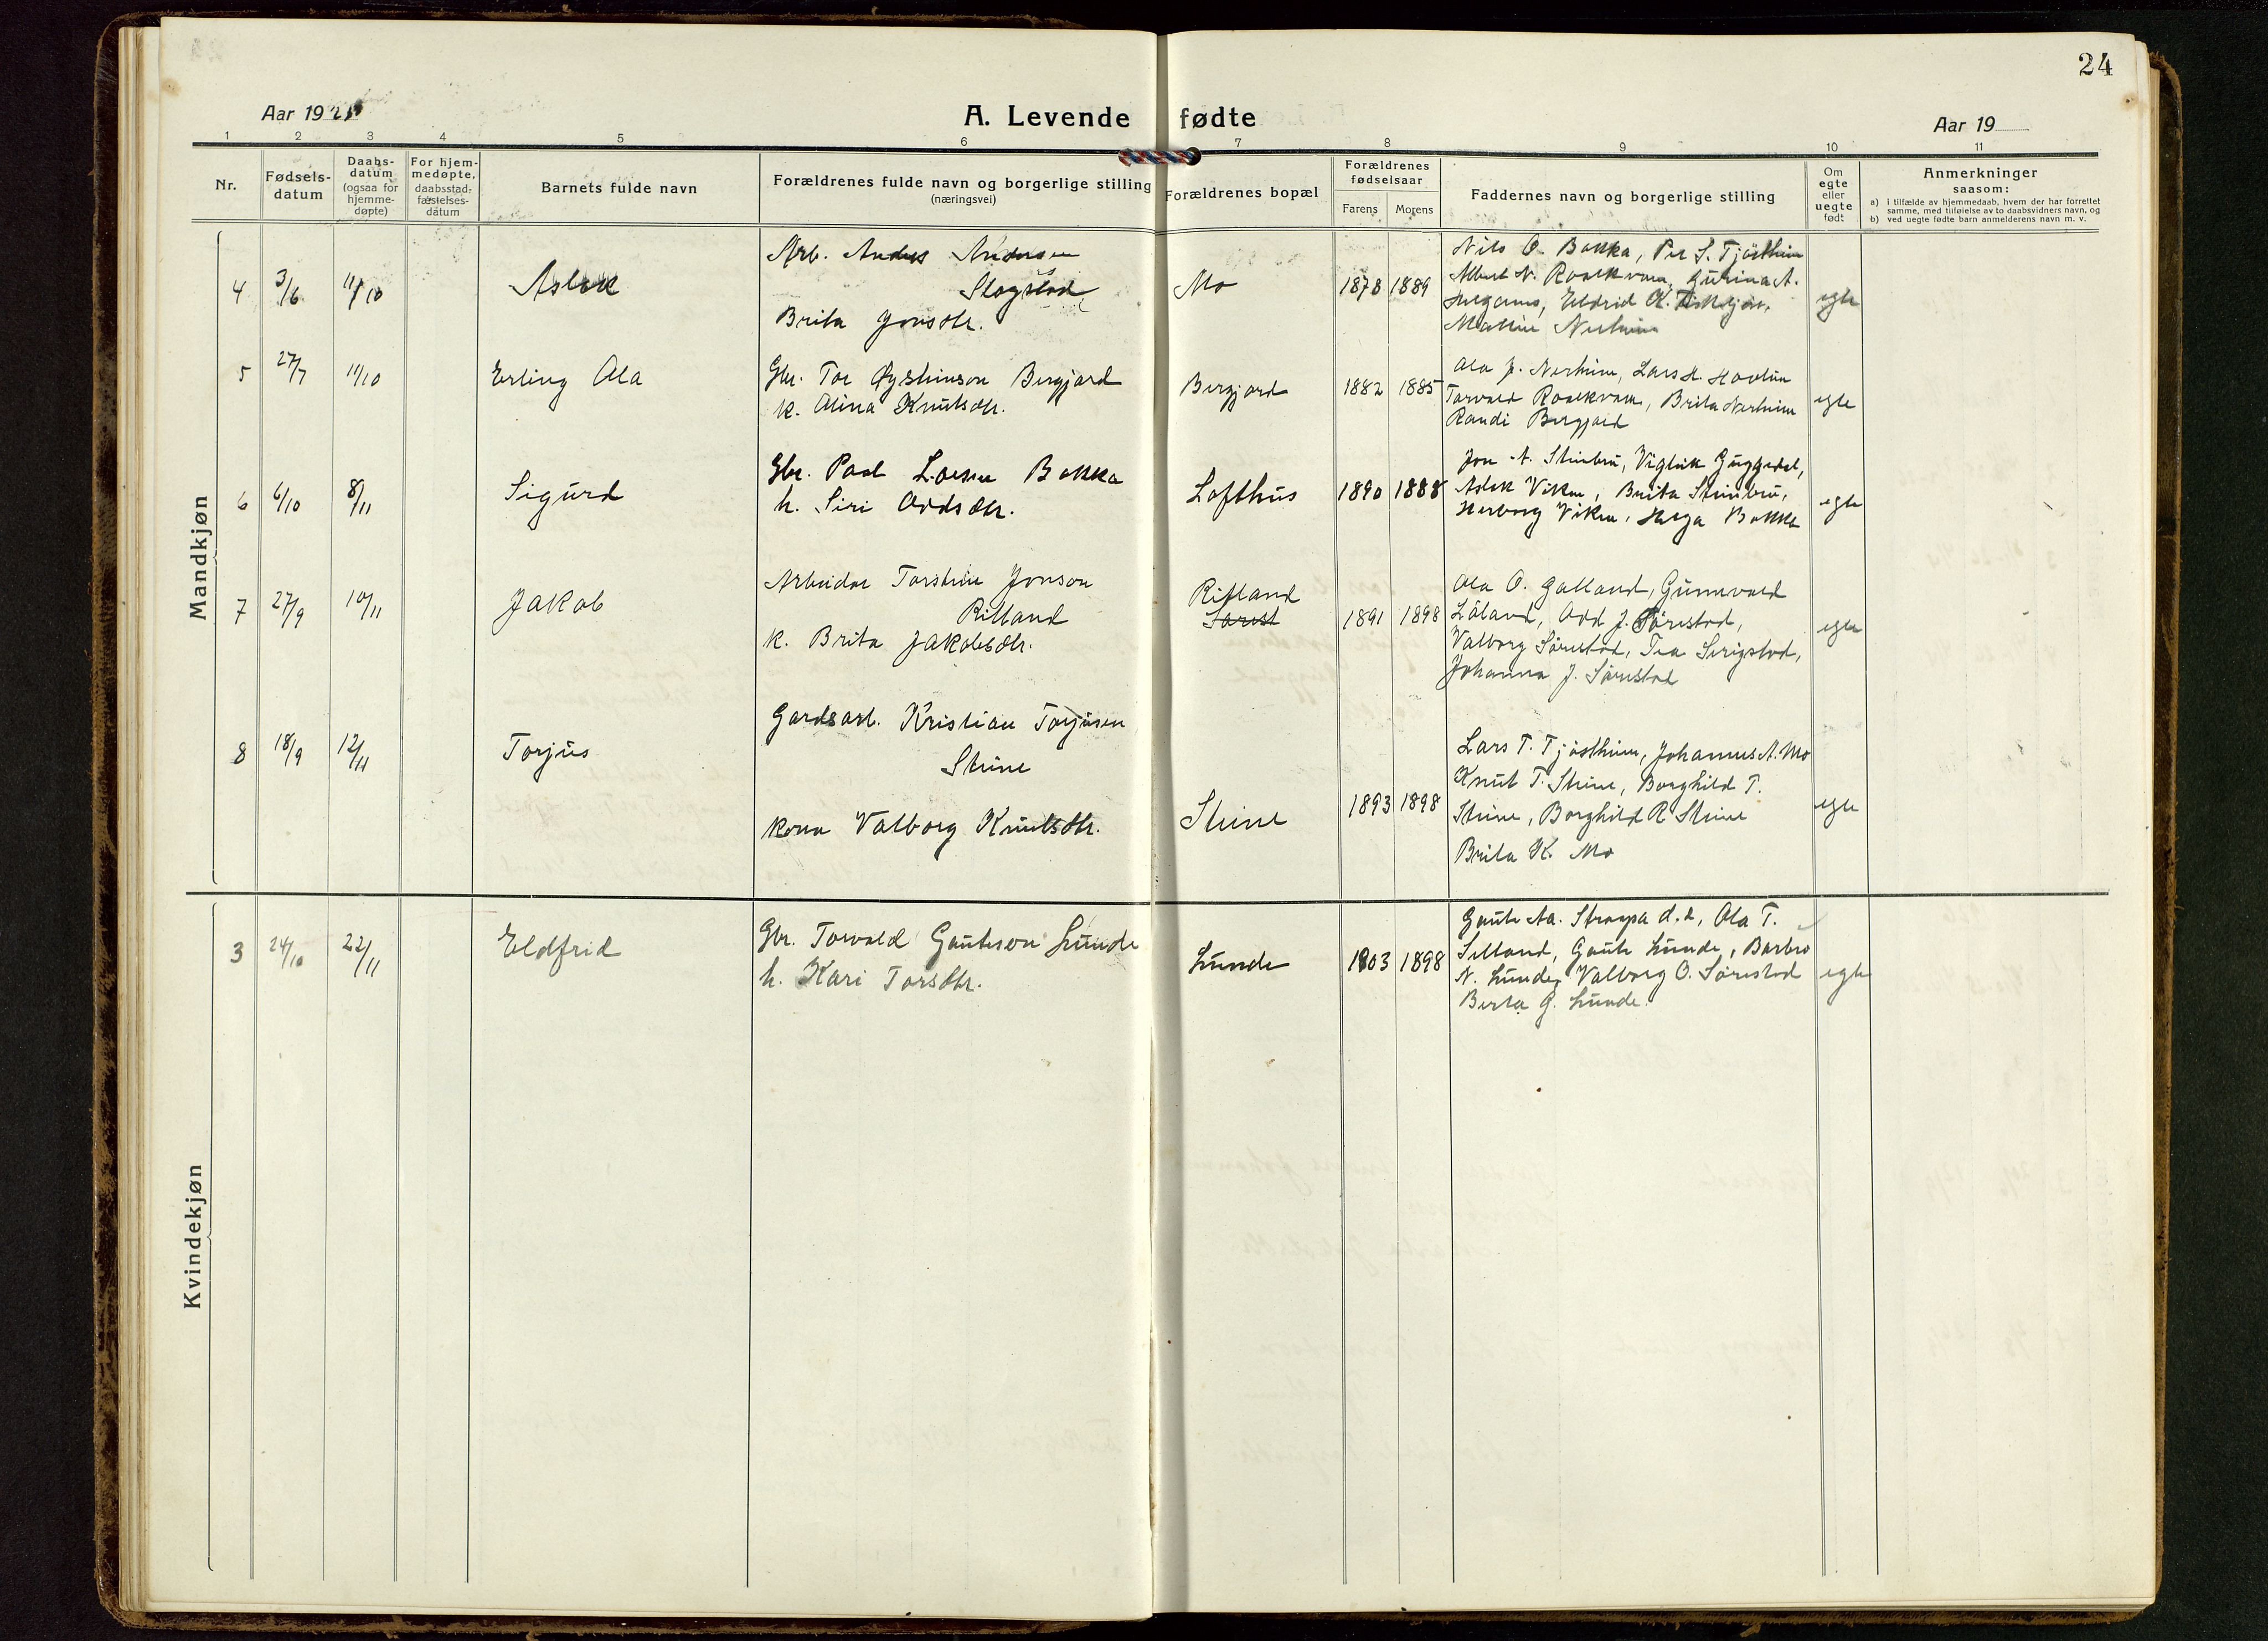 24
Aar 19
A. Levende fødte
Aar 19
1 2 3 4 5 6 7 8 9 10 11
Nr.
Fødsels-
datum
Daabs-
datum
(ogsaa for
hjemme-
døpte)
For hjem-
medøpte,
daabsstad-
fæstelses-
datum
Barnets fulde navn
Forældrenes fulde navn og borgerlige stilling
(næringsvei)
Forældrenes bopæl
Forældrenes
fødselsaar
Farens Morens
Faddernes navn og borgerlige stilling
Om
egte
eller
uegte
født
Anmerkninger
saasom:
a) i tilfælde av hjemmedaab, hvem der har forrettet
samme, med tilføielse av to daabsvidners navn, og
b) ved uegte fødte barn anmelderens navn m. v.
Mandkjøn
4 3/6 11/10 Aslak
Arb. Anders Andersen
Slogstad
Brita Jonsdtr.
Mo 1878 1889
Nils O. Bakka, Per S. Tjøstheim
Albert N. Roalkvam, Gurina A.
Eldrid K.
Nerheim
egte
5 27/7 11/10 Erling Ola
Gbr. Tor Øysteinson Bergjord
k. Olina Knutsdtr.
Bergjord 1882 1885
Ola J. Nerheim, Lars H.
Torvald Roalkvam, Brita Nerheim
Randi Bergjord
egte
6 6/10 8/11 Sigurd
Gbr. Paal Larsen Bakka
h. Siri Oddsdtr.
Lofthus 1890 1888
Jon A. Steinbru, Vigleik Guggedal,
Aslak Viken, Brita Steinbru,
Herborg Viken, Helga Bakka
egte
7 27/9 10/11 Jakob
Arbeidar Torstein Jonson
Rilland
k. Brita Jakobsdtr.
Rilland
Sørest
1891 1898
Ola O. Galland, Gunnvald
Låland, Odd J. Sørestad,
Valborg Sørestad, Tea Serigstad,
Johanna J. Sørestad
egte
8 18/9 12/11 Torjus
Gardsarb. Kristian Torjusen
Steine
kona Valborg Knutsdtr.
Steine 1893 1898
Lars T. Tjøstheim, Johannes A. Mo
Knut T. Steine, Borghild T.
Steine, Borghild R Steine
Brita K. Mo
egte
Kvindekjøn
3 24/10 22/11 Eldfrid
Gbr. Torvald Gauteson Lunde
h. Kari Torsdtr.
Lunde 1903 1898
Gaute Aa. Straapa d.e., Ola T.
Selland, Gaute Lunde, Barbro
N. Lunde, Valborg O. Sørestad
Berta G. Lunde.
egte